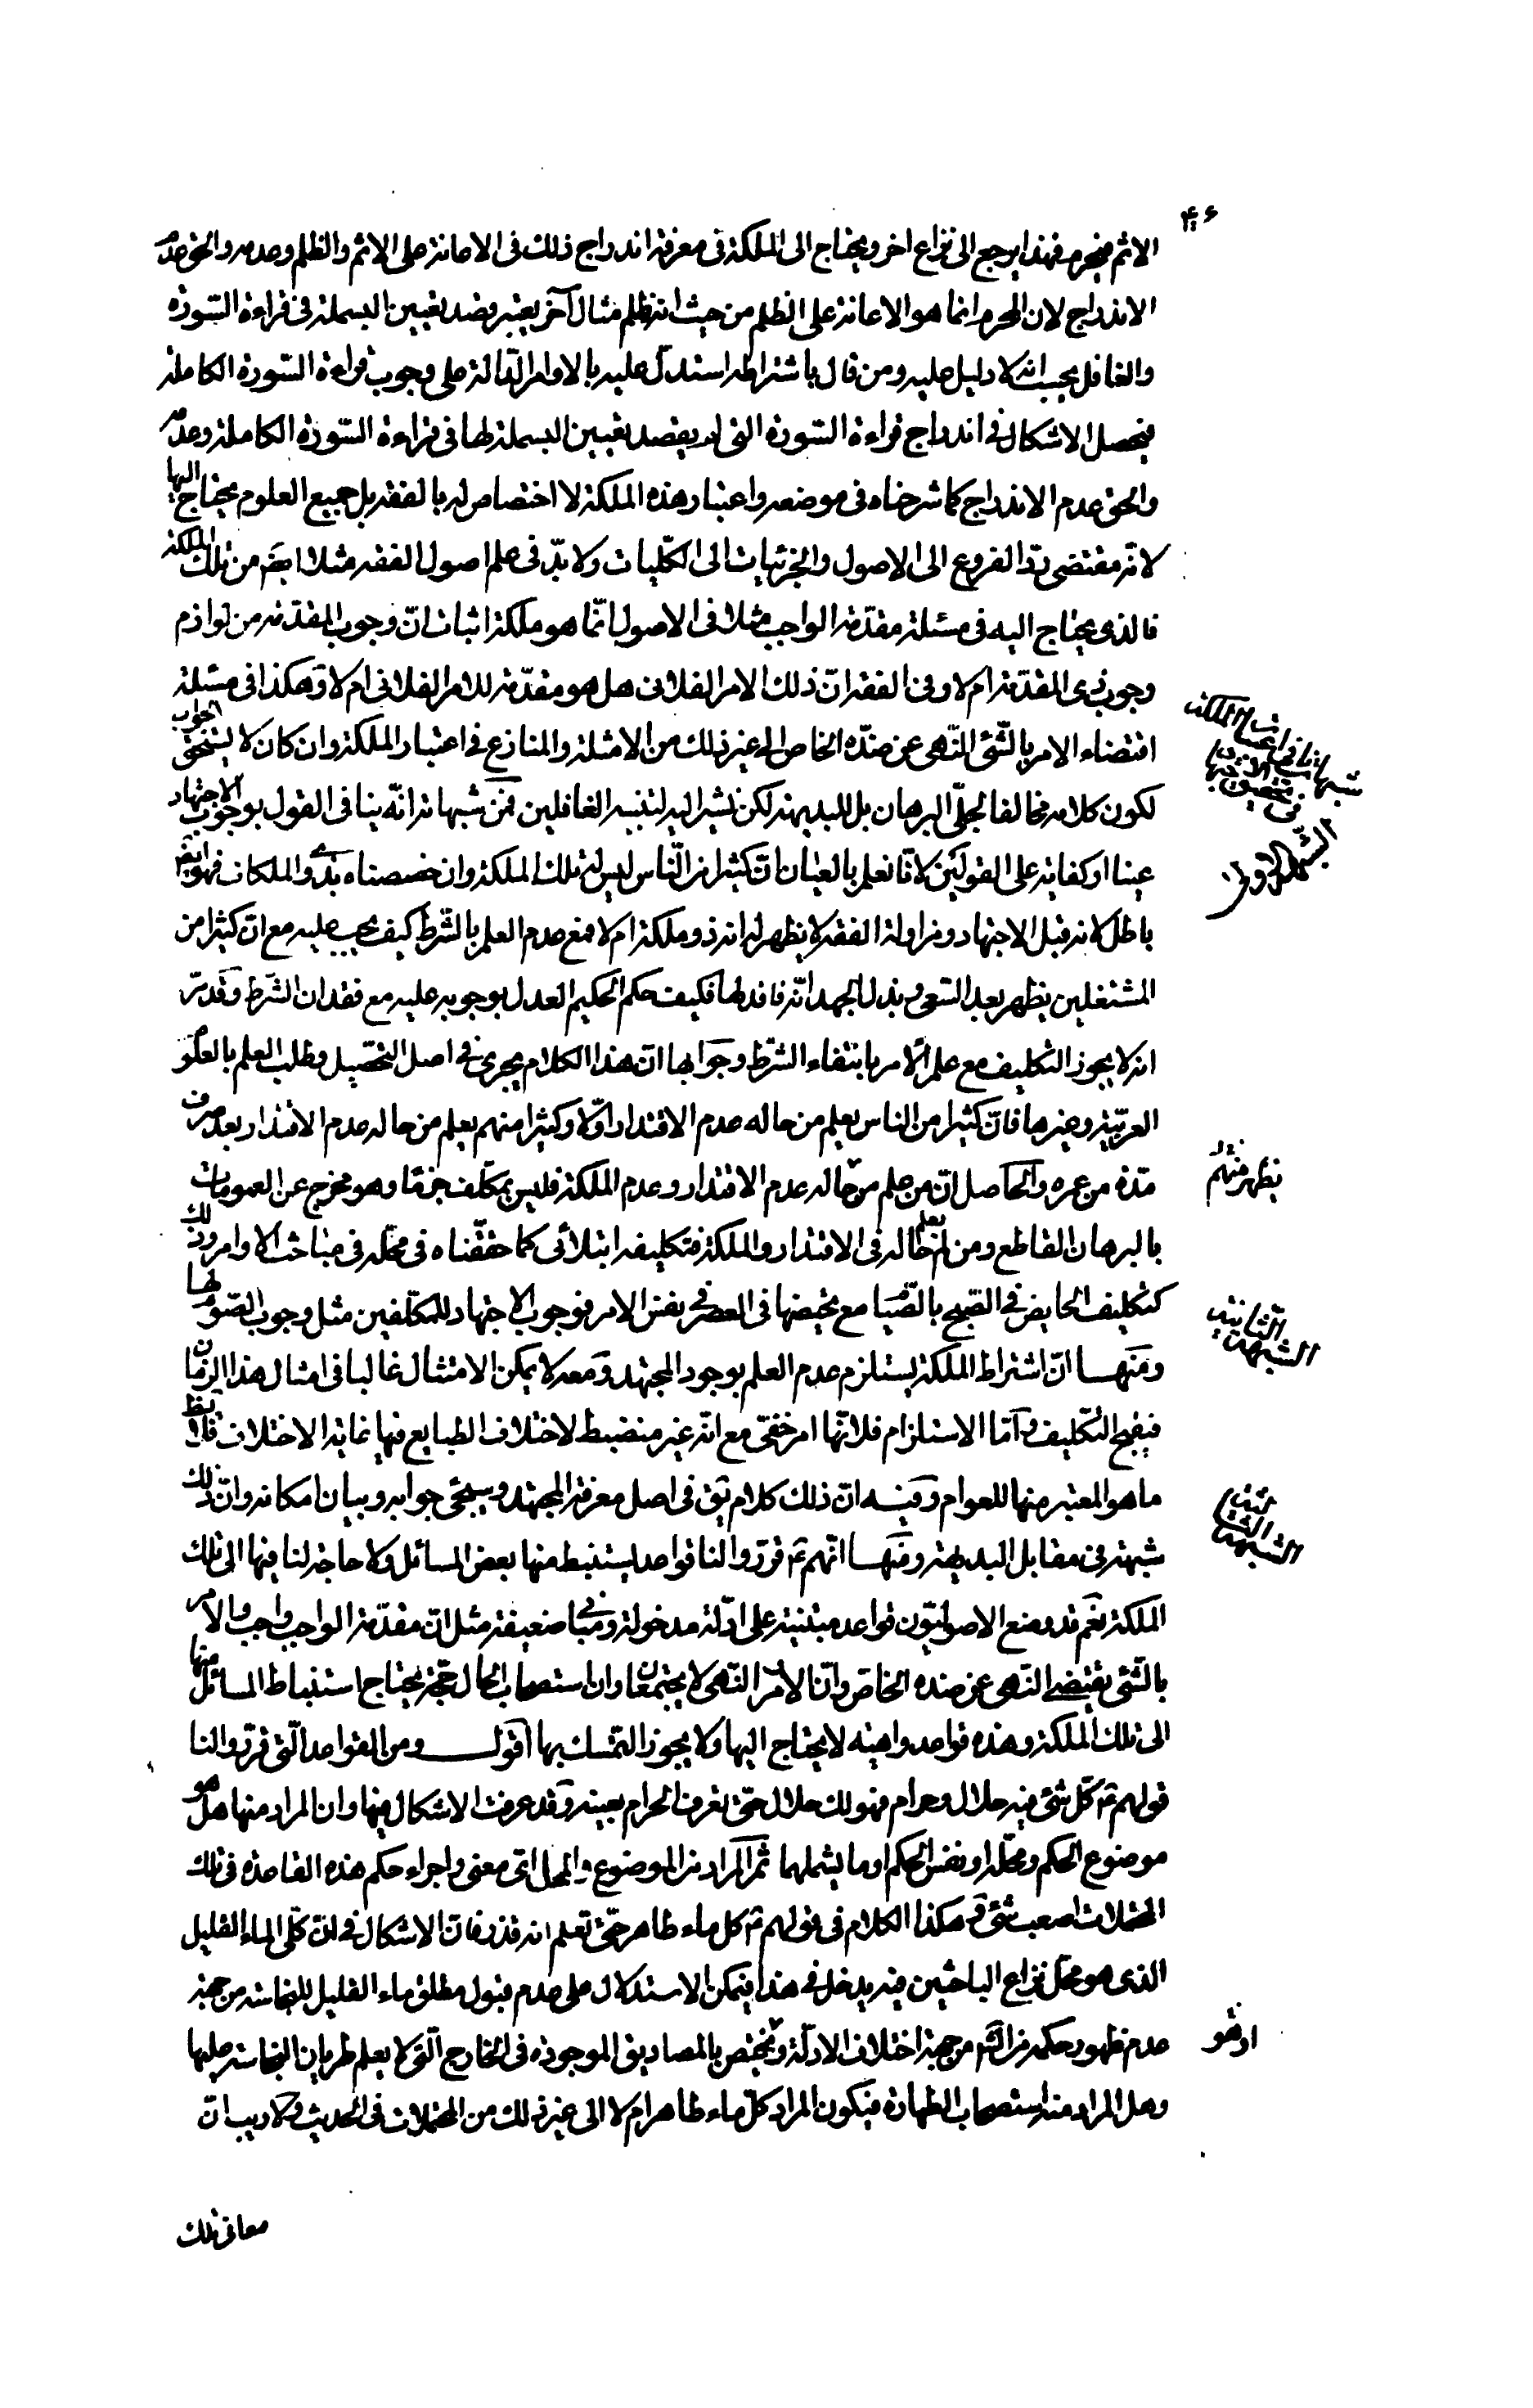 ۴۰۶
الاثم فيحرم فهذا يرجع الى نزاع اخر ويحتاج الى الملكة فى معرفة اندراج ذلك فى الاعانة على الاثم والظلم وعدمه والحق عدم
الاندراج لان المحرم انما هو الاعانة على الظلم من حيث انه ظلم مثال آخر يعتبر قصد تعيين البسملة فى قراءة السّورة
والغافل يحسب انه لا دليل عليه ومن قال باشتراطه استدلّ عليه بالاوامر الدّالة على وجوب قراءة السّورة الكاملة
فيحصل الاشكال فى اندراج قراءة السّورة التى لم يقصد تعيين البسملة لها فى قراءة السّورة الكاملة وعدمه
والحق عدم الاندراج كما شرحناه فى موضعه واعتبار هذه الملكة لا اختصاص له بالفقه بل جميع العلوم يحتاج اليها
لانّه مقتضى ردّ الفروع الى الاصول والجزئيات الى الكلّيات ولا بدّ فى علم اصول الفقه مثلا ايضَ من تلك الملكة
فالذى يحتاج اليه فى مسئلة مقدّمة الواجب مثلا فى الاصول انّما هو ملكة اثبات انّ وجوب المقدّمة من لوازم
وجوب ذى المقدّمة ام لا وفى الفقه انّ ذلك الامر الفلانى هل هو مقدّمة للامر الفلانى ام لا وهكذا فى مسئلة
اقتضاء الامر بالشّئ النّهى عن ضدّه الخاص الى غير ذلك من الامثلة والمنازع فى اعتبار الملكة وان كان لا يستحق الجواب
لكون كلامه مخالفا لجلّى البرهان بل للبديهة لكن نشير اليه لتنبيه الغافلين فمن شبهاته انّه ينافى القول بوجوب الاجتهاد
عينا او كفاية على القولين لانّا نعلم بالعيان انّ كثيرا من النّاس ليس له تلك الملكة وان خصصناه بذوى الملكات فهو ايضَ
باطل لانه قبل الاجتهاد ومزاولة الفقه لا يظهر له انه ذو ملكة ام لا فمع عدم العلم بالشّرط كيف يجب عليه مع انّ كثيرا من
المشتغلين يظهر بعد السّعى وبذل الجهد انّه فاقد لها فكيف حكم الحكيم العدل بوجوبه عليه مع فقدان الشّرط وقد مرّ
انه لا يجوز التكليف مع علم الآمر بانتفاء الشّرط وجوابها انّ هذا الكلام يجرى فى اصل التحصيل وطلب العلم بالعلوم
العربيّة وغيرها فانّ كثيرا من الناس يعلم من حاله عدم الاقتدار اوّلا وكثيرا منهم يعلم من حاله عدم الاقتدار بعد صرف
مدّة من عمره والحاصل انّ من علم من حاله عدم الاقتدار وعدم الملكة فليس بمكلّف جزما وهو مخرج عن العمومات
بالبرهان القاطع ومن لم يعلم حاله فى الاقتدار والملكة فتكليفه ابتلائى كما حققّناه فى محلّه فى مباحث الاوامر وذلك
كتكليف الحايض فى الصّبح بالصّيام مع تحيضها فى العصر فى نفس الامر فوجوب الاجتهاد للمكلّفين مثل وجوب الصّوم لها
ومنها انّ اشتراط الملكة يستلزم عدم العلم بوجود المجتهد ومعه لا يمكن الامتثال غالبا فى امثال هذا الزمان
فيقبح التّكليف وامّا الاستلزام فلانّها امر خفىّ مع انّه غير منضبط لاختلاف الطبايع فيها غاية الاختلاف فلا يظهر
ما هو المعتبر منها للعوام وفيه انّ ذلك كلام يق فى اصل معرفة المجتهد وسيجئ جوابه وبيان امكانه وانّ ذلك
شبهة فى مقابل البديهة ومنها انّهم ع قرّروا لنا قواعد يستنبط منها بعض المسائل ولا حاجة لنا فيها الى تلك
الملكة نعم قد وضع الاصوليّون قواعد مبتنية على ادّلة مدخولة ومبانى ضعيفة مثل انّ مقدّمة الواجب واجب والامر
بالشّئ يقتضى النّهى عن ضده الخاص وانّ الامر والنّهى لا يجتمعان وان استصحاب الحال حجّة يحتاج استنباط المسائل منها
الى تلك الملكة وهذه قواعد واهيه لا يحتاج اليها ولا يجوز التمسك بها اقول ومن القواعد الّتى قرّروا لنا
قولهم ع كلّ شئ فيه حلال وحرام فهو لك حلال حتّى تعرف الحرام بعينه وقد عرفت الاشكال فيها وان المراد منها هل هو
موضوع الحكم ومحلّه او نفس الحكم او ما يشملهما ثم المراد من الموضوع والمحل اىّ معنى واجراء حكم هذه القاعدة فى تلك
المحتملات اصعب شئ وهكذا الكلام فى قولهم ع كل ماء طاهر حتّى تعلم انه قذر فانّ الاشكال فى انّ كلّى الماء القليل
الذى هو محلّ نزاع الباحثين فيه يدخل فى هذا فيمكن الاستدلال على عدم قبول مطلق ماء القليل للنجاسة من جهة
عدم ظهور حكمه من الشّرع من جهة اختلاف الادلّة او يختص بالمصاديق الموجودة فى الخارج الّتى لا يعلم طريان النجاسة عليها
وهل المراد منه استصحاب الطهارة فيكون المراد كلّ ماء طاهر ام لا الى غير ذلك من المحتملات فى الحديث ولا ريب انّ
معانى تلك
الشبهة الاولى
يظهر منهم
الشبهة الثانية
الشبهة الثالثة
او هو